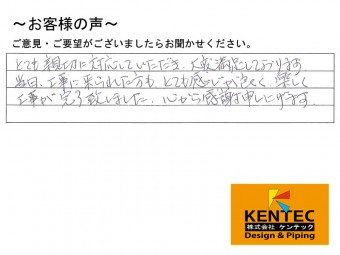 ～お客様の声～
ご意見・ご要望がございましたらお聞かせください。
とても親切に対応していただき、大変満足しております
当日、工事に来られた方も、とても感じが良く、楽しく
工事が完了致しました。心から感謝申し上げます。
KENTEC
株式会社 ケンテック
Design & Piping